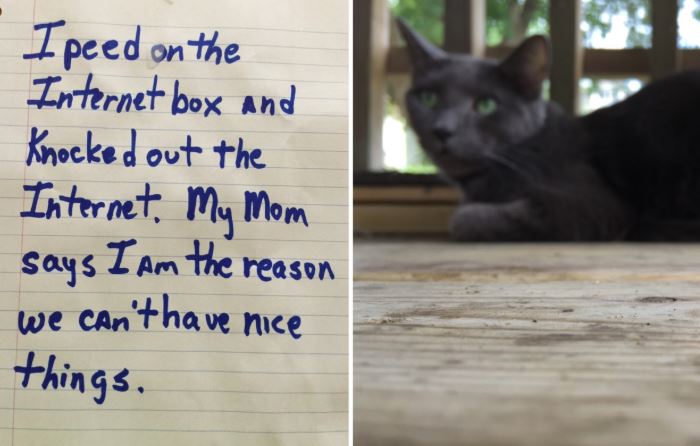 I peed on the
Internet box and
Knocked out the
Internet. My Mom
says I Am the reason
we can't have nice
things.